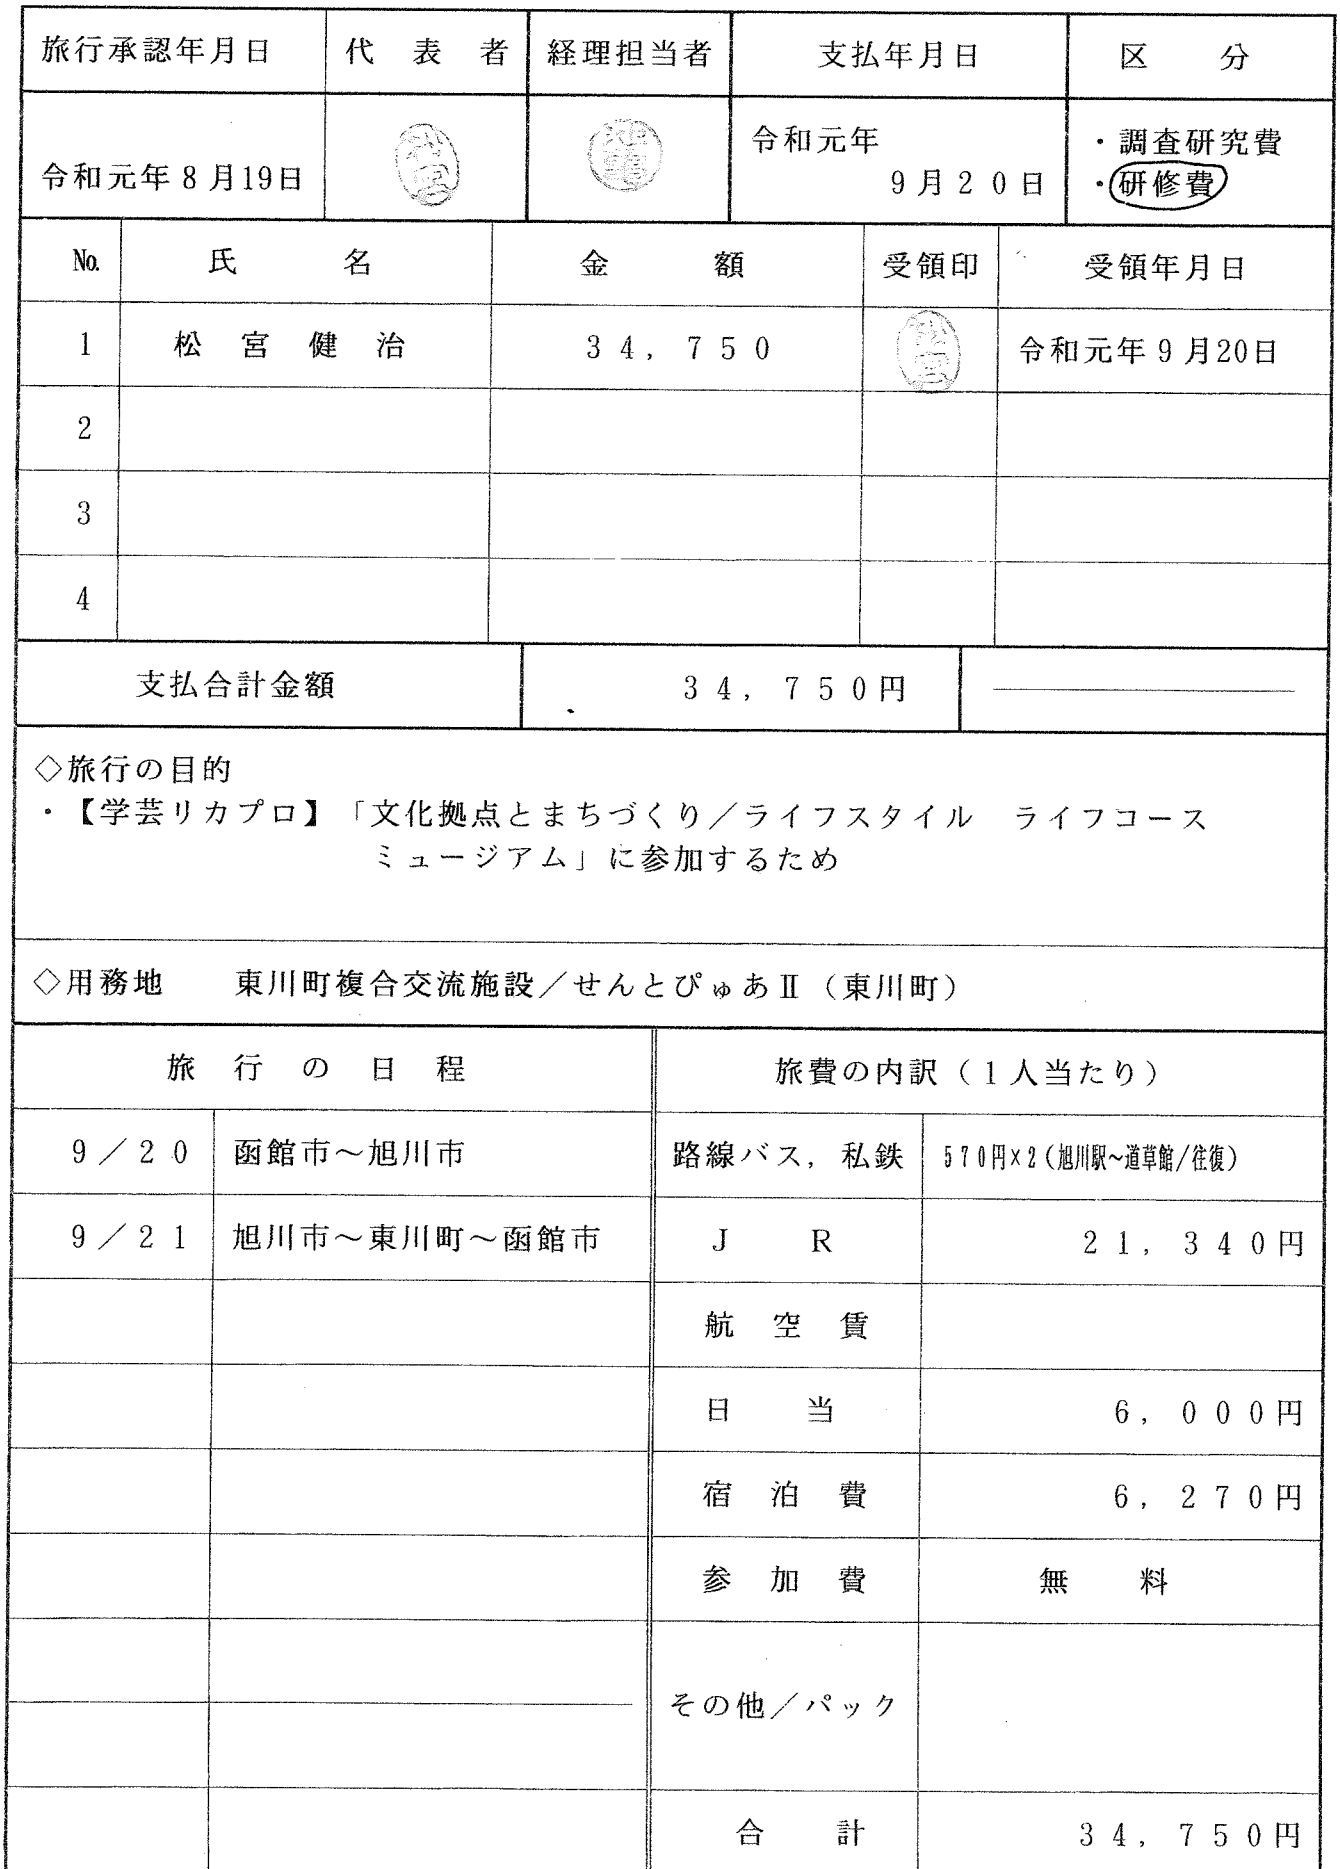 旅行承認年月日 代表者 経理担当者 支払年月日 区分
令和元年8月19日 松宮 令和元年 9月20日 ・調査研究費
・研修費
№ 氏名 金額 受領印 受領年月日
1 松宮健治 34,750 松宮 令和元年9月20日
2
3
4
支払合計金額 34,750円
◇旅行の目的
・【学芸リカプロ】「文化拠点とまちづくり/ライフスタイル ライフコース
ミュージアム」に参加するため
◇用務地 東川町複合交流施設/せんとぴゅあⅡ(東川町)
旅行の日程 旅費の内訳(1人当たり)
9/20 函館市~旭川市 路線バス,私鉄 570円×2(旭川駅~道草館/往復)
9/21 旭川市~東川町~函館市 JR 21,340円
航空賃
日当 6,000円
宿泊費 6,270円
参加費 無料
その他/パック
合計 34,750円